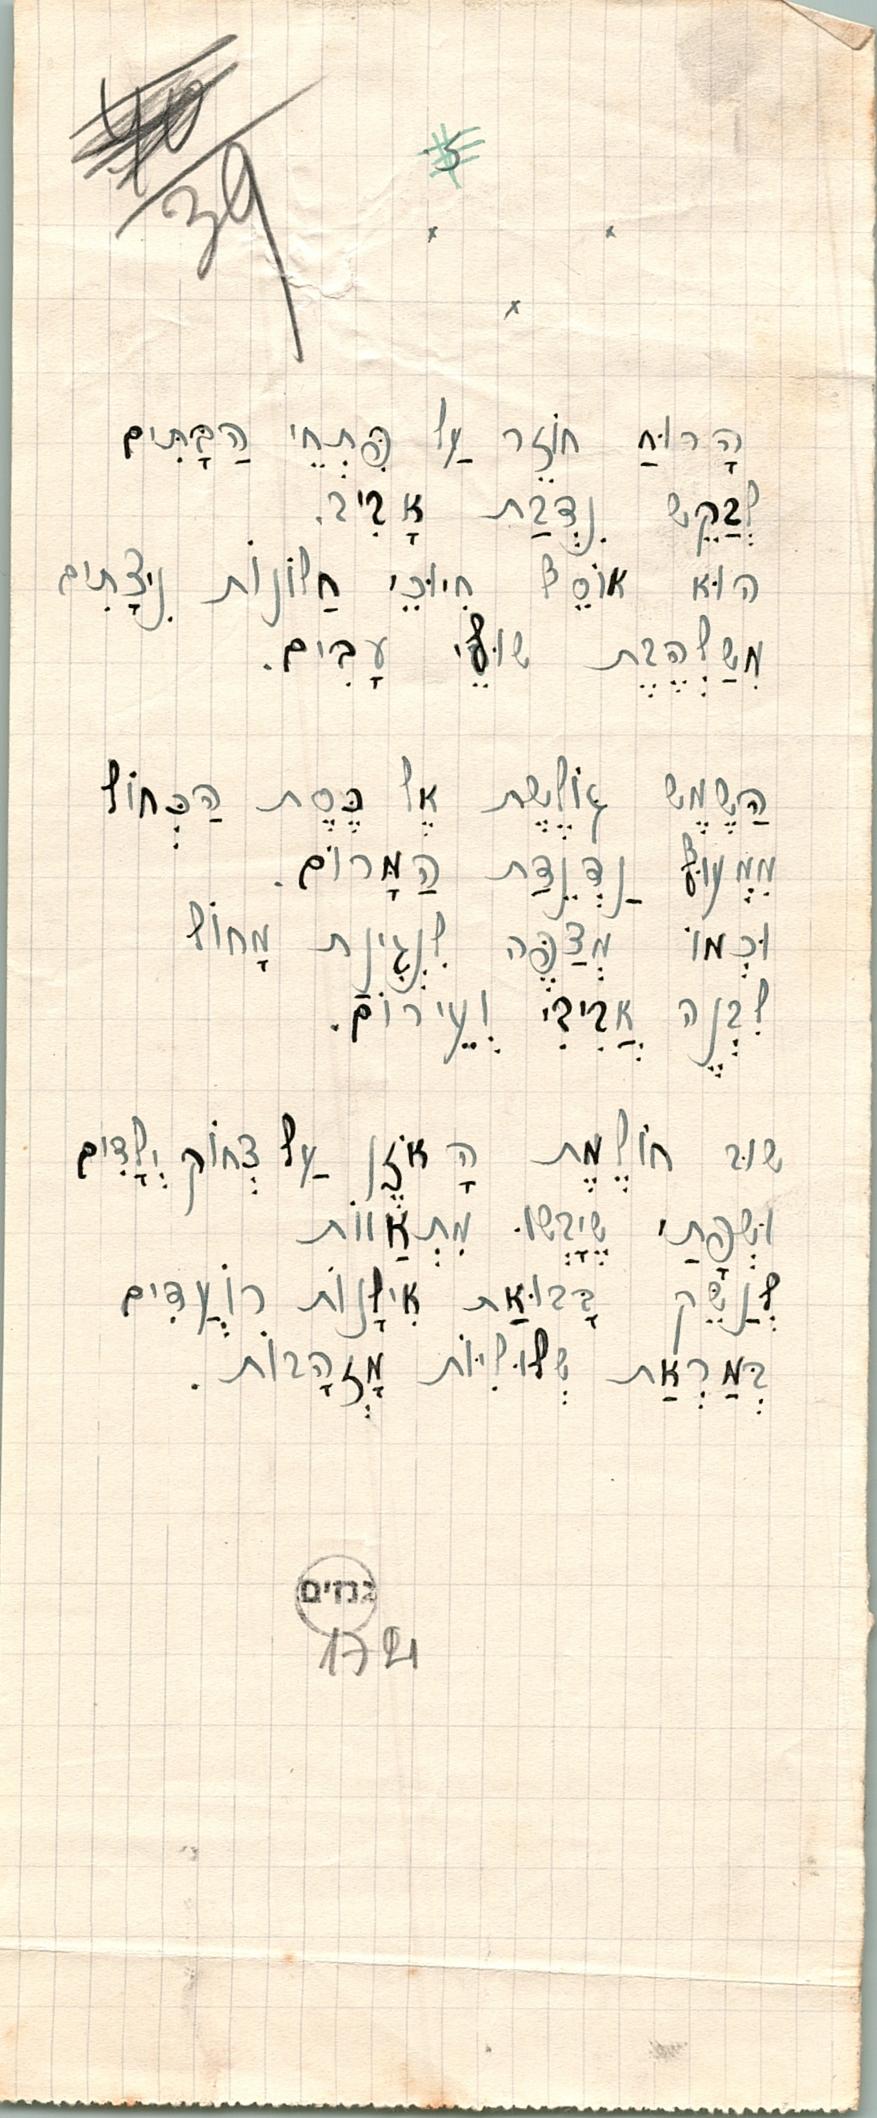 39
5
x x
x
הָרוּחַ חוֹזֵר עַל פִּתְחֵי הַבָּתִּים
לְבַקֵּשׁ נִדְבַת אָבִיב.
הוּא אוֹסֵף חִיּוּכֵי חַלּוֹנוֹת נִיצָּתִים
מִשַּׁלְהֶבֶת שׁוּלֵי עָבִים.
הַשֶּׁמֶשׁ גּוֹלֶשֶׁת אֶל כֶּסֶת הַכְּחוֹל
מִמְּעוּף נַדְנֵדַת הַמָּרוֹם.
וּכְמוֹ מְצַפֶּה לִנְגִינַת מָחוֹל
לִבְנֶה אֲבִיבִי וְעֵירוֹם.
שׁוּב חוֹלֶמֶת הָאֹזֶן עַל צְחוֹק יְלָדִים
וּשְׂפָתַי שֶׁיָּבְשׁוּ מִתַּאֲווֹת
לְנַשֵּׁק בָּבוּאַת אִילָנוֹת רוֹעֲדִים
בְּמַרְאַת שְׁלוּלִיּוֹת מָזְהָבוֹת.
גנזים